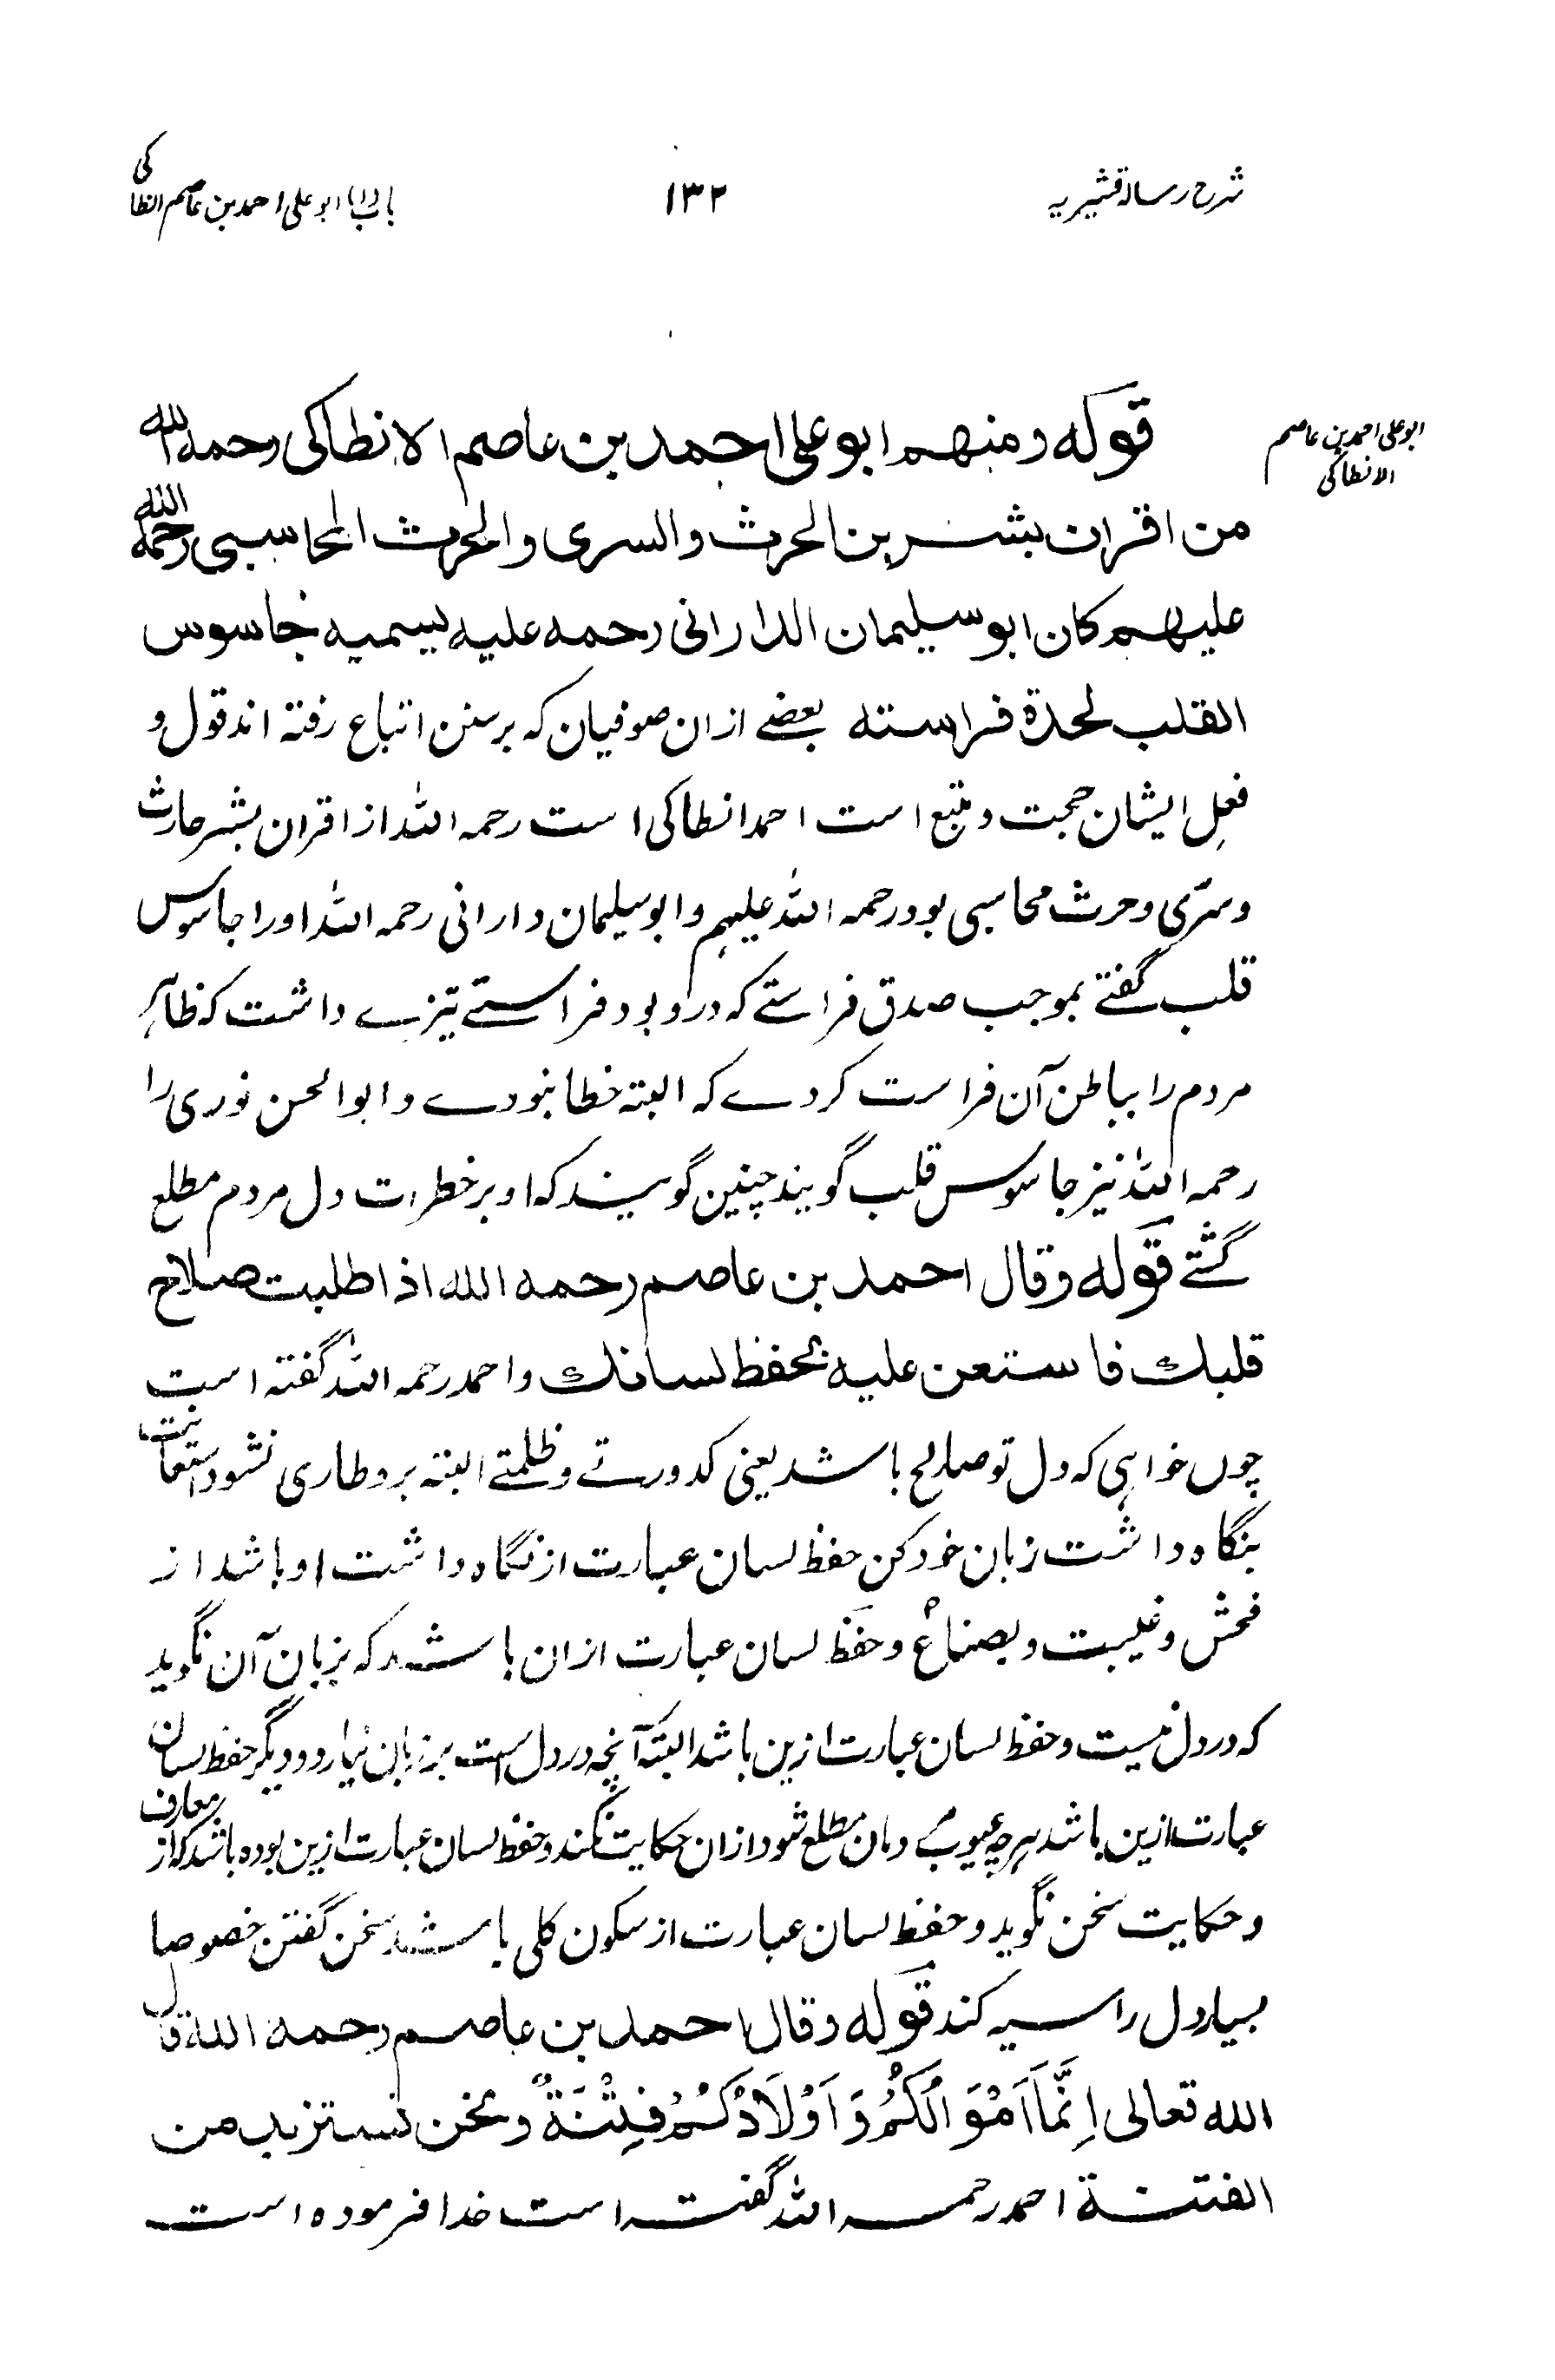 شرح رسالہ قشیریہ
۱۳۲
باب (۱) ابو علی احمد بن عاصم انطاکی
ابو علی احمد بن عاصم
الانطاکی
قوله ومنهم ابو علی احمد بن عاصم الانطاکی رحمه الله
من اقران بشر بن الحرث والسری والحرث المحاسبی رحمة الله
علیهم کان ابو سلیمان الدارانی رحمه علیه یسمیه جاسوس
القلب لحدة فراسته بعضے ازان صوفیان کہ بر سنن اتباع رفتہ اند قول و
فعلِ ایشان حجت و متبع است احمد انطاکی است رحمہ اللہ از اقران بشر حارث
و سرّی و حرث محاسبی بود رحمہ اللہ علیہم و ابو سلیمان دارانی رحمہ اللہ او را جاسوس
قلب گفتے بموجب صدق فراستے کہ در و بود فراستے تیزے داشت کہ ظاہر
مردم را بباطن آن فراست کردے کہ البتہ خطا نبودے و ابو الحسن نوری را
رحمہ اللہ نیز جاسوس قلب گویند چنین گویند کہ او بر خطرات دل مردم مطلع
گشتے قوله وقال احمد بن عاصم رحمه الله اذا طلبت صلاح
قلبك فاستعن علیه بحفظ لسانك و احمد رحمہ اللہ گفتہ است
چوں خواہی کہ دل تو صالح باشد یعنی کدورتے و ظلمتے البتہ برو طاری نشود استعانت
بنگاہ داشت زبان خود کن حفظ لسان عبارت از نگاہ داشت او باشد از
فحش و غیبت و و حفظ لسان عبارت ازان باشد کہ بزبان آن نگوید
کہ در دل نیست و حفظ لسان عبارت ازین باشد البتہ آنچہ در دل است بر زبان نیارد و دیگر حفظ لسان
عبارت ازین باشد ہرچہ عیوب مردمان مطلع شود ازان حکایت نکند و حفظ لسان عبارت ازین بودہ باشد کہ از معارف
و حکایت سخن نگوید و حفظ لسان عبارت از سکون کلی باشد سخن گفتن خصوصا
بسیار دل را سیہ کند قوله وقال احمد بن عاصم رحمه الله قال
الله تعالی اِنَّمَا اَمْوَالُكُمْ وَ اَوْلَادُكُمْ فِتْنَةٌ ونحن نستزید من
الفتنة احمد رحمہ اللہ گفتہ است خدا فرمودہ است